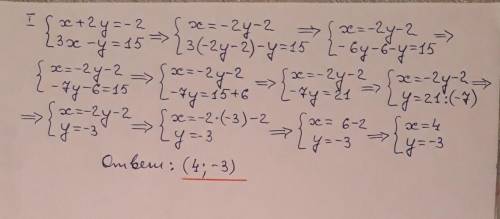 I { x+2y=-2 3x-y=15 => { x=-2y-2 3(-2y-2)-y=15 => { x=-2y-2 -6y-6-y=15 =>
{ x=-2y-2 -7y-6=15 => { x=-2y-2 -7y=15+6 => { x=-2y-2 -7y=21 => { x=-2y-2 y=21:(-7) =>
=> { x=-2y-2 y=-3 => { x=-2·(-3)-2 y=-3 => { x= 6-2 y=-3 => { x=4 y=-3
Ответ: (4;-3)